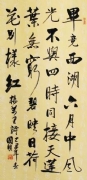 畢竟西湖六月中風
光不與四時同接天蓮
葉無窮碧映日荷
花別樣紅